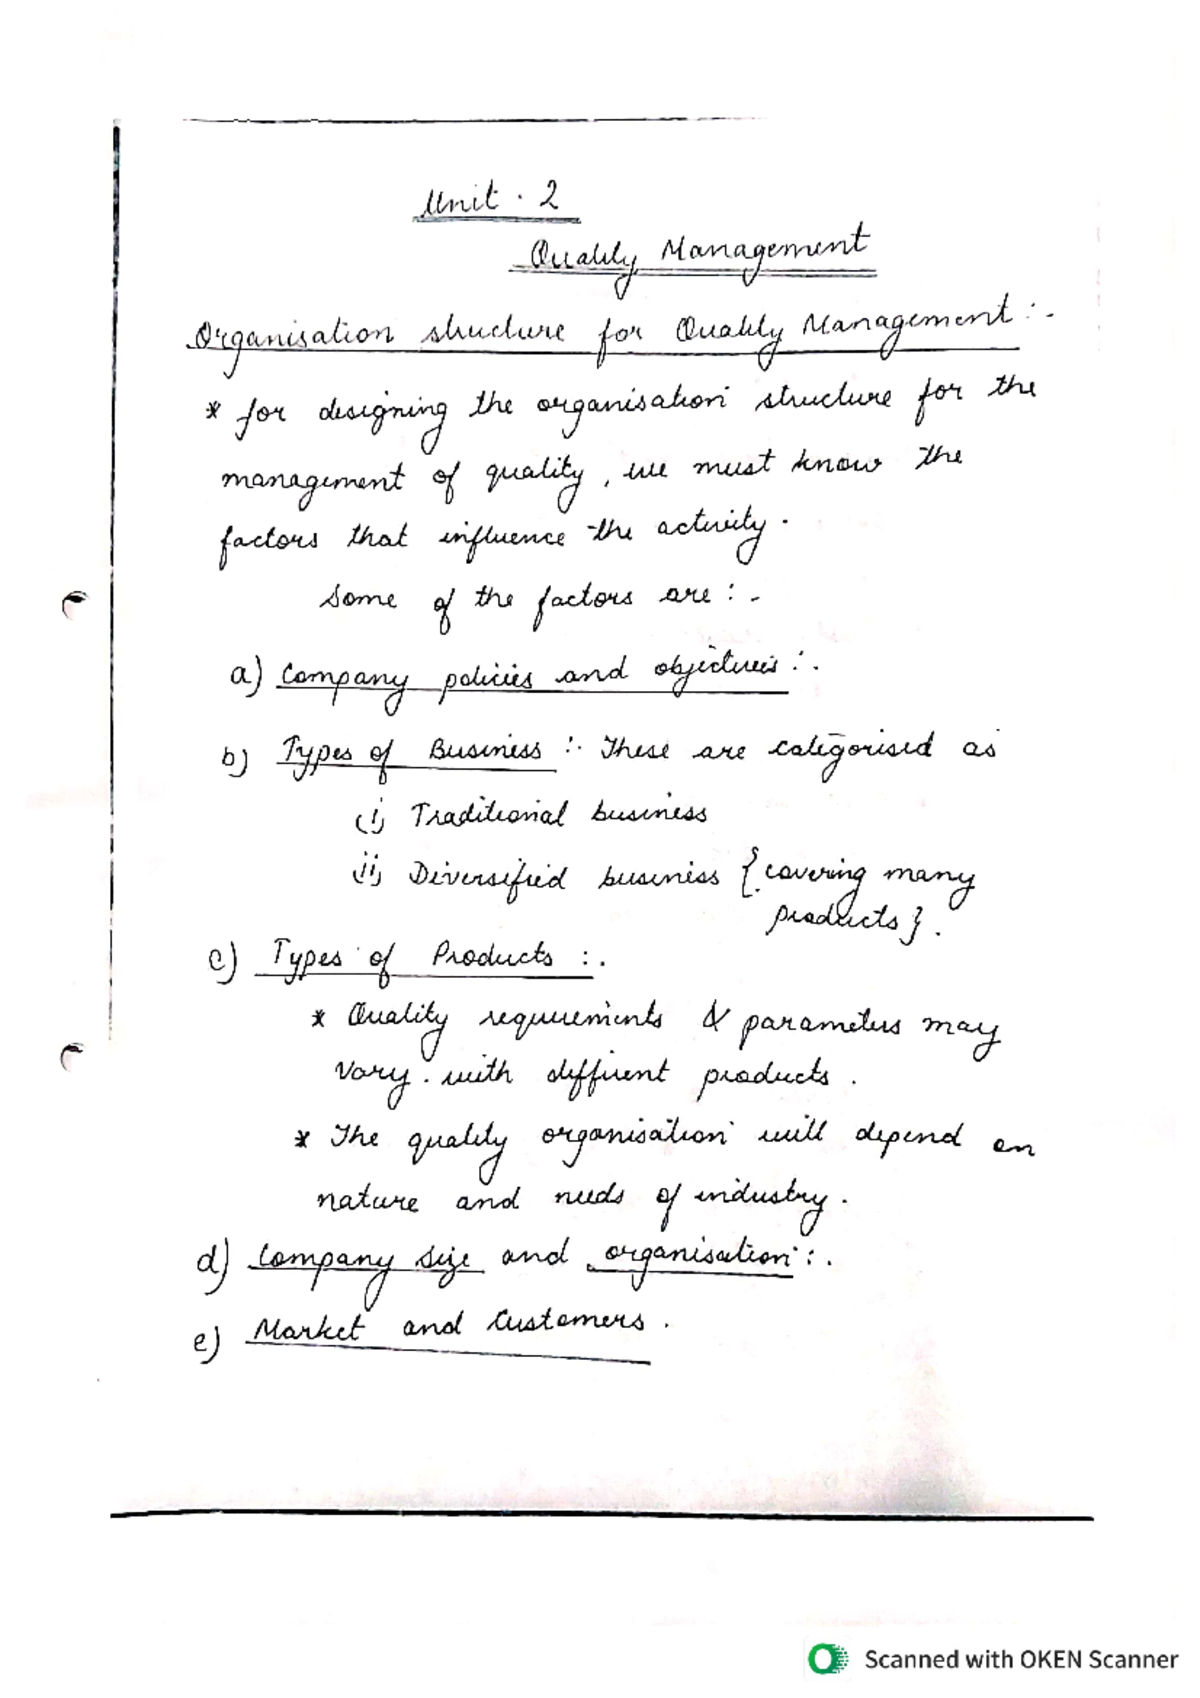 Unit · 2
Quality Management
Organisation structure for Quality Management :-
* for designing the organisation structure for the
management of quality, we must know the
factors that influence the activity.
Some of the factors are :-
a) Company policies and objectives :-
b) Types of Business :- These are categorised as
(i) Traditional business
ii) Diversified business {covering many
products}.
c) Types of Products :-
* Quality requirements & parameters may
vary. with different products.
* The quality organisation will depend on
nature and needs of industry.
d) Company size and organisation :-
e) Market and Customers.
Scanned with OKEN Scanner